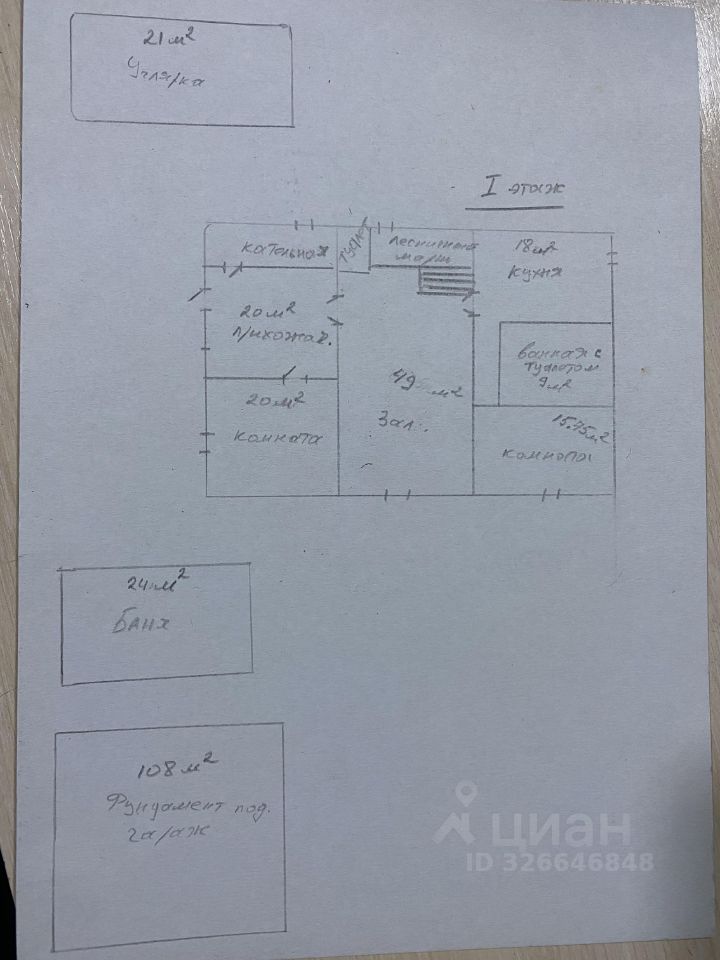 21 м²
Углярка
I этаж
кательная
туалет
лесничный
марш
18 м²
кухня
20 м²
прихожая.
ванная с
туалетом
9 м²
49 м²
Зал.
20 м²
комната
15.75 м²
комната
24 м²
Баня
108 м²
Фундамент под.
гараж
циан
ID 326646848